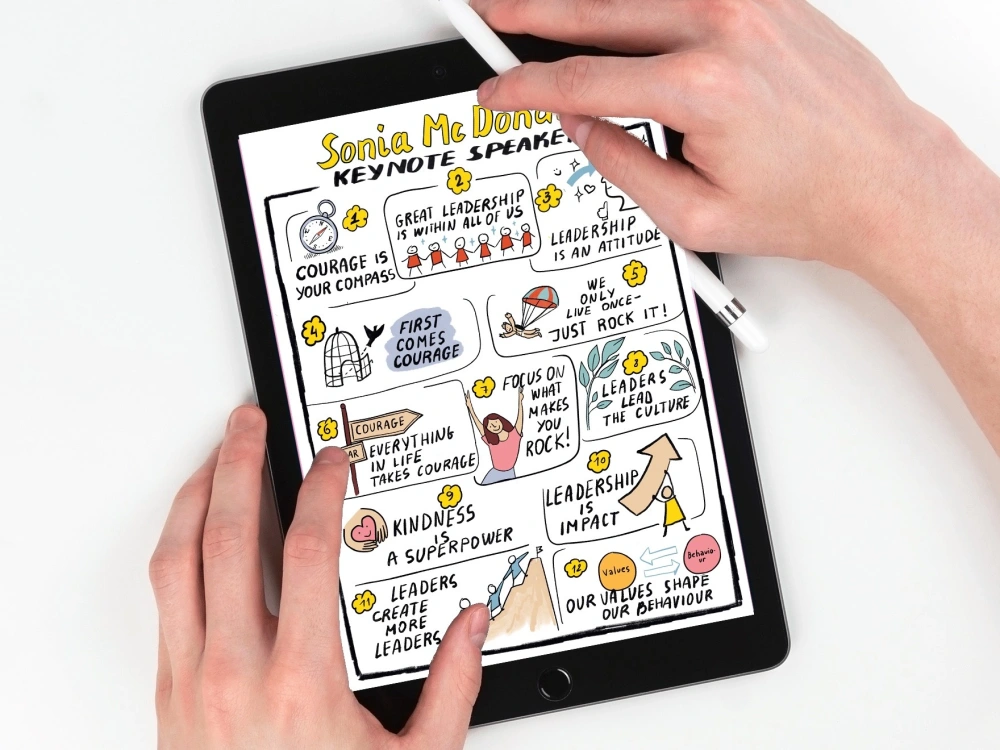 Sonia Mc Dona
KEYNOTE SPEAKE
1
COURAGE IS
YOUR COMPASS
2
GREAT LEADERSHIP
IS WITHIN ALL OF US
3
LEADERSHIP
IS AN ATTITUDE
4
FIRST
COMES
COURAGE
5
WE
ONLY
LIVE ONCE-
JUST ROCK IT!
6
COURAGE
AR
EVERYTHING
IN LIFE
TAKES COURAGE
7
FOCUS ON
WHAT
MAKES
YOU
ROCK!
8
LEADERS
LEAD
THE CULTURE
9
KINDNESS
IS
A SUPERPOWER
10
LEADERSHIP
IS
IMPACT
11
LEADERS
CREATE
MORE
LEADERS
12
Values
Behavio-
ur
OUR VALUES SHAPE
OUR BEHAVIOUR